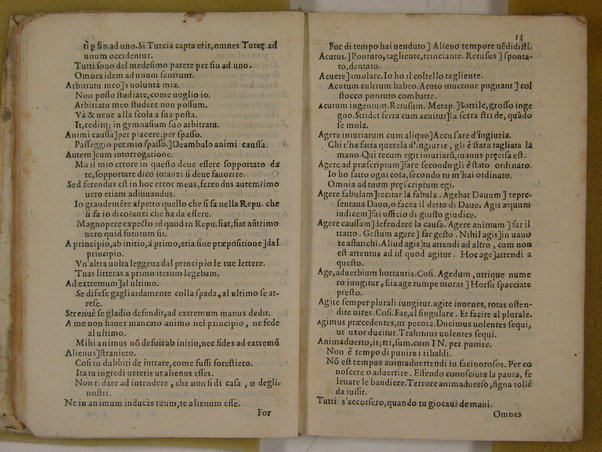 ti p sin ad uno. Si Turcia capta erit, omnes Turcę ad
unum occidentur.
Tutti sono del medesimo parere per sin ad uno.
Omnes idem ad unum sentiunt.
Arbitratu meo] i uolontà mia.
Non posso studiare, come uoglio io.
Arbitratu meo studere non possum.
Và & uene alla scola a sua posta.
It, reditq; in gymnasium suo arbitratu.
Animi caussa] per piacere, per spasso.
Passeggio per mio spasso.] Deambulo animi caussa.
Autem] cum interrogatione.
Ma il mio errore in questo deue essere sopportato da
te, sopportare dico io: anzi si deue fauorire.
Sed ferendus est in hoc error meus, ferendus autem? imo
uero etiam adiuuandus.
Io grandemẽte aspetto quello che si fa nella Repu. che
si fa io dico? anzi che ha da essere.
Magnopere expecto id quod in Repu. fiat, fiat autẽ? imo
uero quid futurum sit.
A principio, ab initio, á primo, etia sine præpositione] dal
principio.
Vn'altra uolta leggena dal principio le tue lettere.
Tuas litteras a primo iterum legebam.
Ad extremum] al ultimo.
Se difese gagliardamente colla spada, al ultimo se at-
rese.
Strenuè se gladio defendit, ad extremum manus dedit.
A me non hauer mancato animo nel principio, ne fede
al ultimo.
Mihi animus nõ defuit ab initio, nec fides ad extremũ
Alienus] straniero.
Cosi tu dubbiti de iuttare, come fussi forestiero.
Ita tu ingredi uereris ut alienus esses.
Non ti dare ad intendere, che non si di casa, o degli-
nostri.
Ne in animum inducas tuum, te alienum esse.
For
13
For di tempo hai uenduto] Alieno tempore uẽdidisti.
Acutus.] Pontuto, tagliente, trinciante. Retusus] sponta-
to, dentato.
Acuere] amolare. Io ho il coltello tagliente.
Acutum cultrum habeo. Acuto mucrone pugnant] col
stocco pontuto combatte.
Acutum ingenium. Retusum. Metap.] Sottile, grosso inge
gno. Stridet serra cum acuitur] la serra stride, quã do
se mola.
Agere iniuriarum cum aliquo] Accusare d'ingiuria.
Chi t'ha fatta querela d'ingiurie, gli è stata tagliata la
mano. Qui tecum egit iniuriarũ, manus præcisa est.
Agere ad præscriptum] fare secondo gli è stato ordinato.
Io ho fatto ogni cola, secondo tu m'hai ordinato.
Omnia ad tuum præscriptum egi.
Agere fabulam] recitar la fabula. Agebat Dauum] repre
sentaua Dauo, o facea il detto di Dauo. Agis æquum
iudicem] fai ufficio di giusto giudice.
Agere caussam] defendere la causa. Agere animam] far il
tratto. Gestum agere] far gesto. Nihil agis] in uano
te affatichi. Aliud agis] tu attendi ad altro, cum non
est attentus ad id quod agitur. Hoc age] attendi a
questo.
Age, aduerbium hortantis. Cosi. Agedum, utrique nume
ro iungitur, Eia age rumpe moras] Horsu spacciate
presto.
Agite semper plurali iungitur. agite iuuenes, totas osten-
dite uires. Cosi. Fac, al singulare. Et facite al plurale.
Agimus præcedentes, ut pecora. Ducimus uolentes sequi,
ut uxor ducitur. Trahimus uolentes sequi.
Animaduerto, is; rti, sum. cum IN. per punire.
Non è tempo di punire i ribaldi.
Nõ est tempus animaduertendi in facinorosos. Per co
noscere o aduertire. Essendo conosciuta la paura, fe
leuare le bandiere. Terrore animaduerso, signa tolle
da iussit.
Tutti s'accorsero, quando tu giocaui de mani.
Omnes